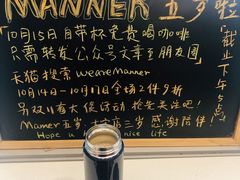 MANNER 五岁啦
10月15日自带杯免费喝咖啡
只需转发公众号文章至朋友圈
截止下午5点
天猫搜索wearemanner
10月14日-10月17日全场2件9折
另双11有大促活动 抢先关注吧!
Manner五岁, 店三岁 感谢陪伴!
Hope u nise life